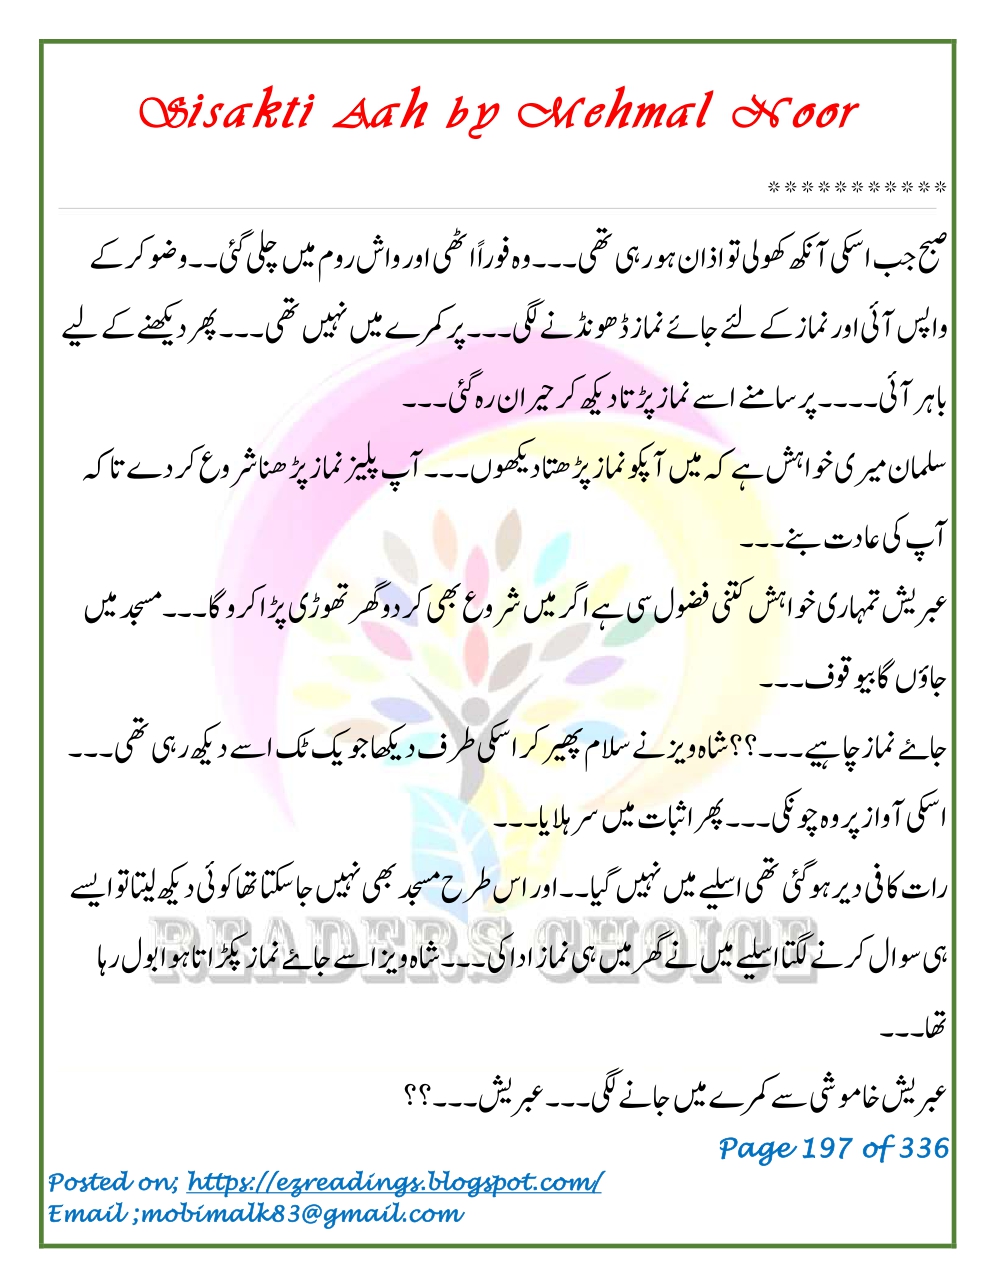 Sisakti Aah by Mehmal Noor
***********
صبح جب اسکی آنکھ کھولی تو اذان ہو رہی تھی۔۔۔وہ فوراً اٹھی اور واش روم میں چلی گئی۔۔وضو کر کے
واپس آئی اور نماز کے لئے جائے نماز ڈھونڈنے لگی۔۔۔پر کمرے میں نہیں تھی۔۔۔پھر دیکھنے کے لیے
باہر آئی۔۔۔۔پر سامنے اسے نماز پڑتا دیکھ کر حیران رہ گئی۔۔۔
سلمان میری خواہش ہے کہ میں آپکو نماز پڑھتا دیکھوں۔۔۔آپ پلیز نماز پڑھنا شروع کر دے تا کہ
آپ کی عادت بنے۔۔۔
عبریش تمہاری خواہش کتنی فضول سی ہے اگر میں شروع بھی کر دو گھر تھوڑی پڑا کرو گا۔۔۔مسجد میں
جاؤں گا بیوقوف۔۔۔
جائے نماز چاہیے۔۔۔؟؟شاہ ویز نے سلام پھیر کر اسکی طرف دیکھا جو یک ٹک اسے دیکھ رہی تھی۔۔۔
اسکی آواز پر وہ چونکی۔۔۔پھر اثبات میں سر ہلایا۔۔۔
رات کافی دیر ہو گئی تھی اسلیے میں نہیں گیا۔۔اور اس طرح مسجد بھی نہیں جا سکتا تھا کوئی دیکھ لیتا تو ایسے
ہی سوال کرنے لگتا اسلیے میں نے گھر میں ہی نماز ادا کی۔۔۔شاہ ویز اسے جائے نماز پکڑاتا ہوا بول رہا
تھا۔۔۔
عبریش خاموشی سے کمرے میں جانے لگی۔۔۔عبریش۔۔۔؟؟
READERS CHOICE
Page 197 of 336
Posted on; https://ezreadings.blogspot.com/
Email ;mobimalk83@gmail.com